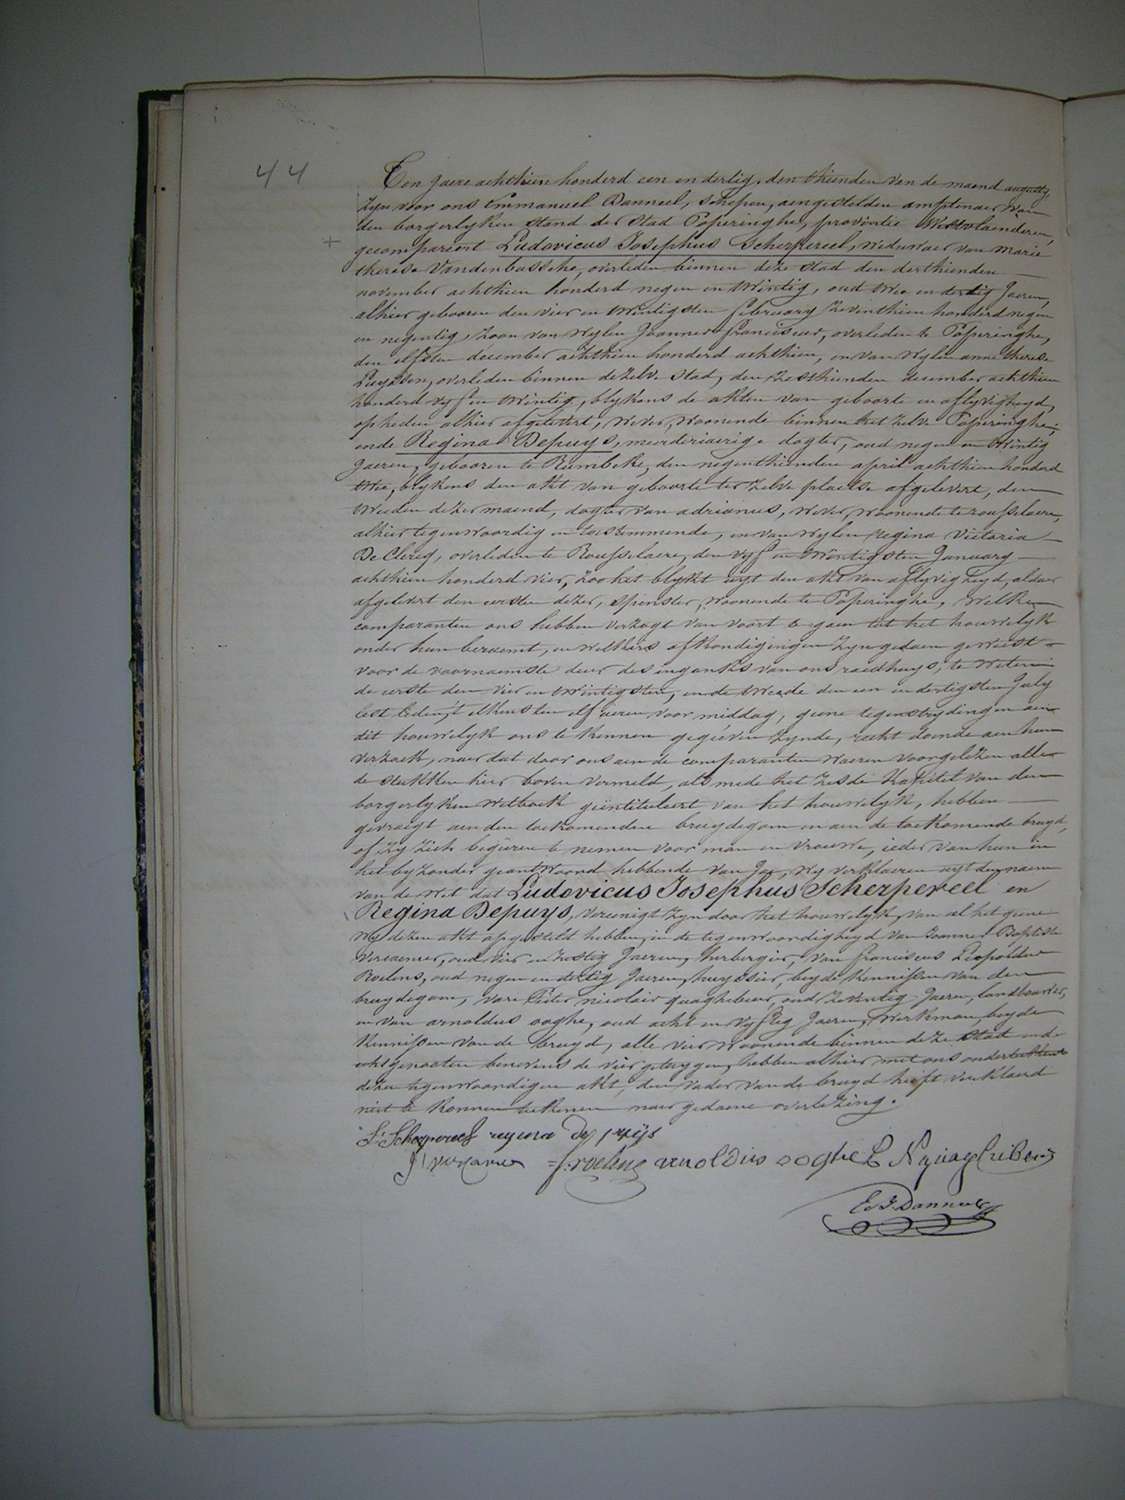 44
Ten jaere achthien honderd een en dertig, den thienden van de maend augusty
zyn voor ons Emmanuel Danneel, schepen, aengestelden amptenaer van
den borgerlyken stand der stad Poperinghe, provintie Westvlaenderen,
+ gecompareert Ludovicus Josephus Scherpereel, weduwaer van Marie
therese Vandenbussche, overleden binnen deze stad den derthienden
november achthien honderd negen en twintig, oud twee en dertig Jaeren,
alhier gebooren den vier en twintigsten february zeventhien honderd negen
en negentig, zoon van wylen Joannes franciscus, overleden te Poperinghe,
den elfsten december achthien honderd achthien, en van wylen anne therese
overleden binnen de zelve stad, den zesthienden december achthien
honderd vyf en twintig, blykens de akten van geboorte en aflyvigheyd,
op heden alhier afgelevert, wever, woonende binnen het zelve Poperinghe,
ende Regina Depuys, meerderjaerige dogter, oud negen en twintig
Jaeren, gebooren te Rumbeke, den negenthienden april achthien honderd
twee, blykens den akt van geboorte ter zelve plaetse afgelevert, den
tweeden dezer maend, dogter van adrianus, wever, woonende te rousselaere,
alhier tegenwoordig en toestemmende, en van wylen regina victoria
De Clercq, overleden te Rousselaere, den vyf en twintigsten January
achthien honderd vier, zoo het blykt uyt den akt van aflyvigheyd, aldaer
afgelevert den eersten dezer, spinster, woonende te Poperinghe. Welke
comparanten ons hebben verzogt van voort te gaen tot het houwelyk
onder hun beraemt, en welkers afkondigingen zyn gedaen geweest
voor de voornaemste deur des ingangs van ons raedhuys, te weten
de eerste den vier en twintigsten, en de tweede den een en dertigsten July
lest leden, t'elkens ten elf uren voor middag, geene tegenstrydingen aen
dit houwelyk ons te kennen gegeven zynde, recht doende aen hun
verzoek, naer dat door ons aen de comparanten waeren voorgelezen alle
de stukken hier boven vermeld, als mede het zesde kapittel van den
borgerlyken wetboek geintituleert van het houwelyk, hebben
gevraegt aen den toekomenden bruydegom en aen de toekomende bruyd,
of zy zich begeeren te nemen voor man en vrouwe, ieder van hun in
het byzonder geantwoord hebbende van Ja, wy verklaeren uyt den naem
van de wet dat Ludovicus Josephus Scherpereel en
Regina Depuys, vereenigt zyn door het houwelyk, van al het geene
wy dezen akt opgesteld hebben, in de tegenwoordigheyd van Joannes Baptiste
oud vier en zestig Jaeren, herbergier, van franciscus Leopoldus
Roelens, oud negen en dertig Jaeren, huyssier, beyde kennissen van den
bruydegom, van Pieter nicolais quaghebeur, oud zeventig Jaeren, landbouwer,
en van arnoldus ooghe, oud acht en vyftig Jaeren, werkman, beyde
kennissen van de bruyd, alle vier woonende binnen deze stad ende
echtgenooten benevens de vier getuygen, hebben alhier met ons onderteekent
dezen tegenwoordigen akt, den vader van de bruyd heeft verklaerd
niet te konnen teekenen naer gedaene overlezing.
L: Scherpereel regina De puijs
f: roelens arnoldus ooghe P N quaghebeur
E. J. Danneel